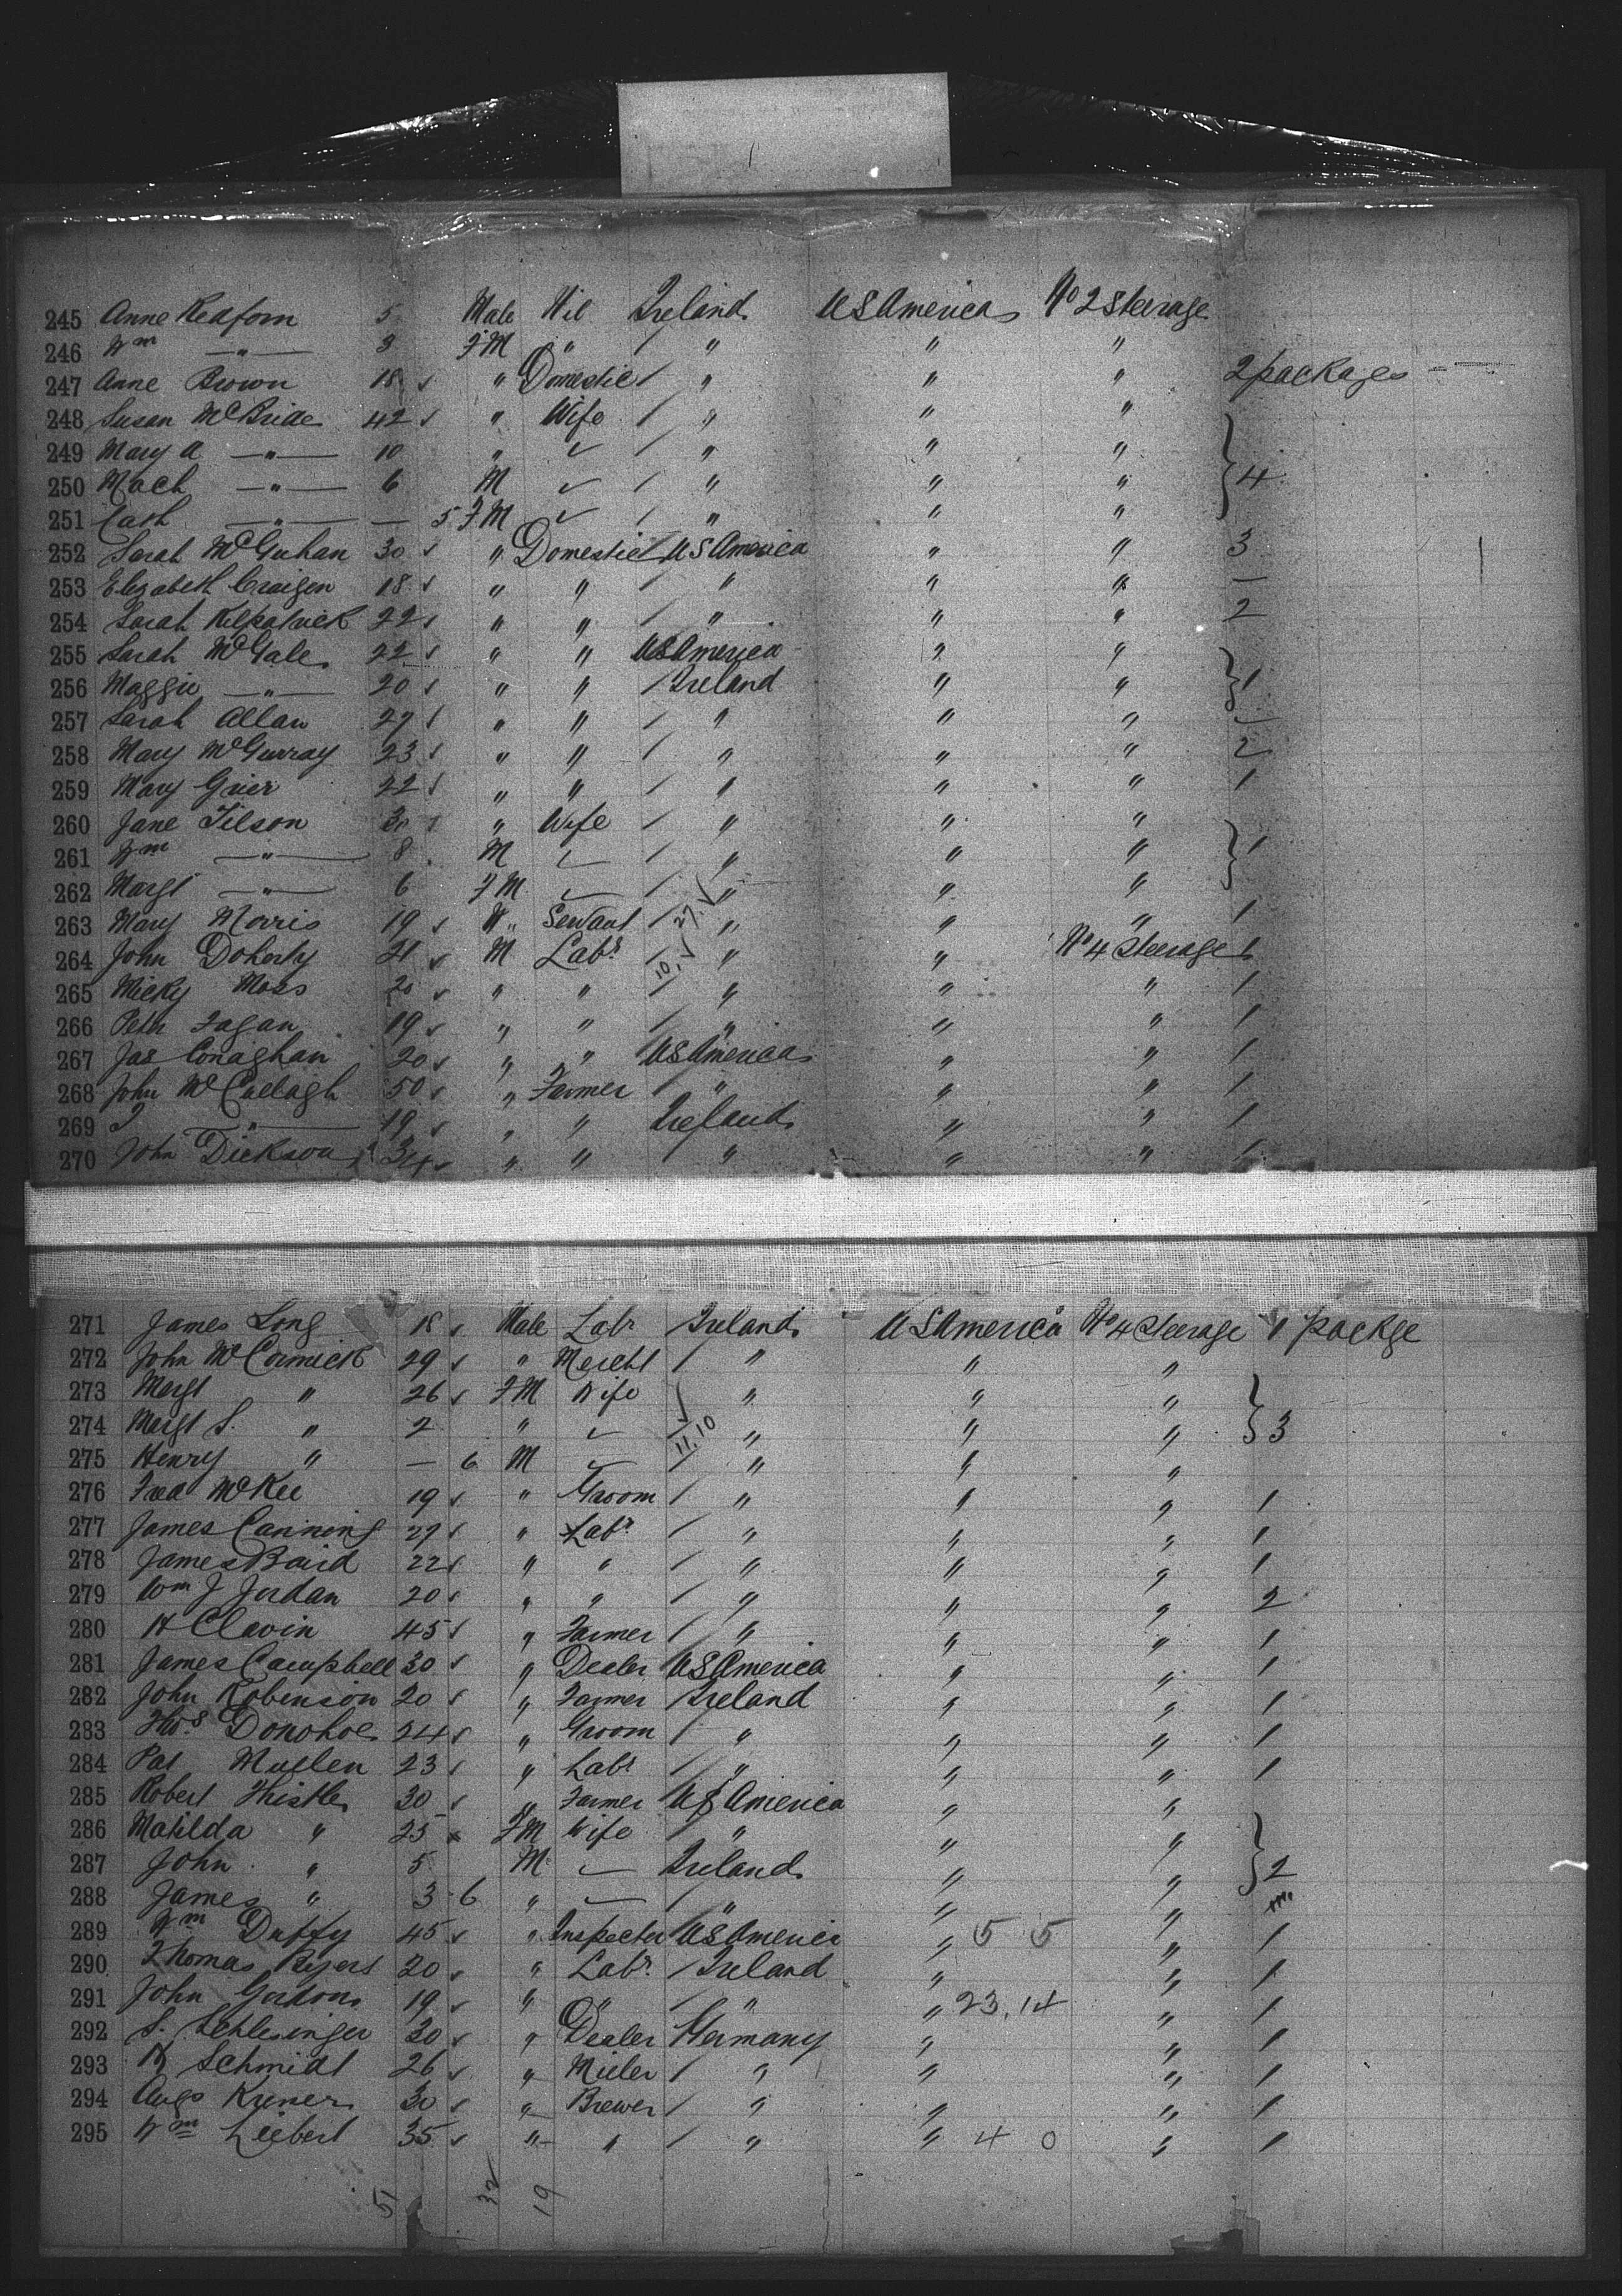 245 Anne Redforn 5 Male Nil Ireland U S America No 2 Steerage
246 Wm — " — 3 F M " / " " "
247 Anne Brown 18 " Domestic / " " " 2 packages
248 Susan McBride 42 " Wife / " " "
249 Mary A — " — 10 " ✓ / " " "
250 Mach — " — 6 M ✓ / " " " } 4
251 Cath — " — — 5 F M ✓ / " " "
252 Sarah McGuhan 30 " Domestic / U S America " " 3
253 Elizabeth Craigen 18 " " / " " " —
254 Sarah Kilpatrick 22 " " / " " " 2
255 Sarah McGale 22 " " U S America " "
256 Maggie — " — 20 " " / Ireland " " } 1
257 Sarah Allan 27 " " / " " " —
258 Mary McGurray 23 " " / " " " 2
259 Mary Grier 22 " " / " " " 1
260 Jane Tilson 30 " Wife / " " "
261 Wm — " — 8 M ✓ / " " " } 1
262 Margt — " — 6 F M ✓ / " " "
263 Mary Morris 19 " Servant / 27 " " " 1
264 John Doherty 21 M Labr / " " No 4 Steerage 1
265 Micky Moss 20 " " 10 / " " " 1
266 Peter Fagan 19 " " / " " " 1
267 Jas Conaghan 20 " " U S America " " 1
268 John McCallagh 50 " Farmer / " " " 1
269 J — " — 19 " " Ireland " " 1
270 John Dickson 34 " " " " " 1
271 James Long 18 Male Labr Ireland U S America No 4 Steerage 1 packge
272 John McCormick 29 " Mercht / " " "
273 Margt " 26 F M Wife " " "
274 Margt S. " 2 " ✓ / 11.10 " " " } 3
275 Henry " — 6 M ✓ / " " "
276 Fred McKee 19 " Groom / " " " 1
277 James Canning 27 " Labr / " " " 1
278 James Baird 22 " " / " " " 1
279 Wm J Jordan 20 " " / " " " 2
280 H Clavin 45 " Farmer / " " " 1
281 James Campbell 30 " Dealer U S America " " 1
282 John Robinson 20 " Farmer Ireland " " 1
283 Thos Donohoe 24 " Groom / " " " 1
284 Pat Mullen 23 " Labr / " " " 1
285 Robert Thistle 30 " Farmer U S America " "
286 Matilda " 25 F M Wife / " " "
287 John " 5 M ✓ Ireland " " } 2
288 James " 3 6 " ✓ / " " "
289 Wm Duffy 45 " Inspecter U S America " 5 5 " 1
290 Thomas Byers 20 " Labr / Ireland " " 1
291 John Gordon 19 " " / " " 23.14 " 1
292 S. Schlesinger 30 " Dealer Germany " " 1
293 H Schmidt 26 " Miller / " " " 1
294 Augs Kruner 30 " Brewer / " " " 1
295 Wm Liebert 35 " " / " " 4 0 " 1
51 32 19